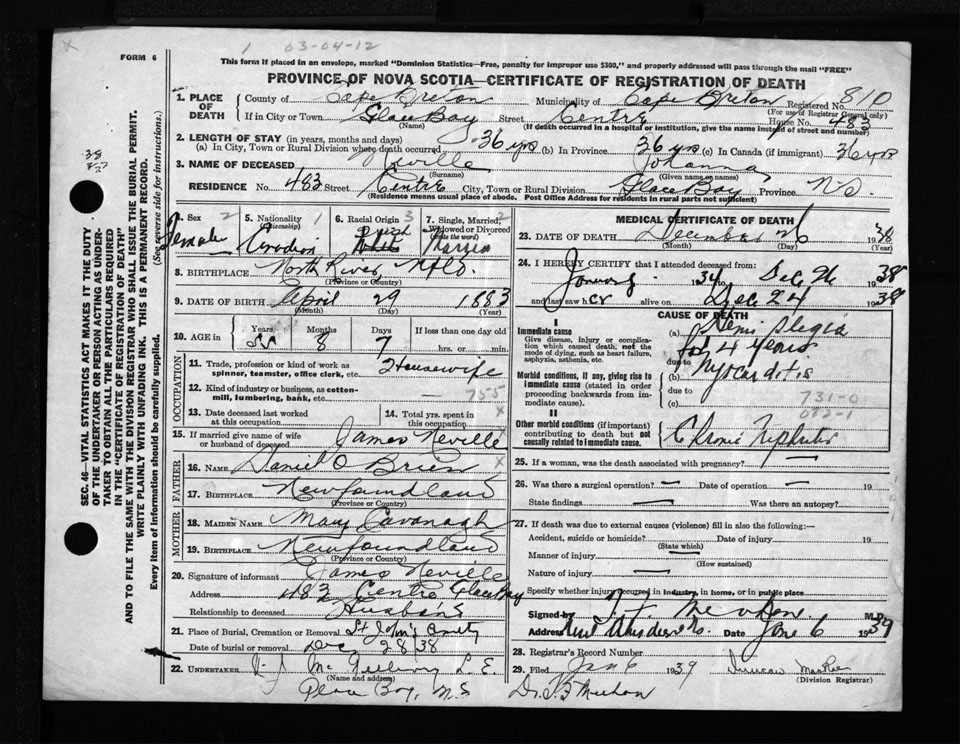 1 03-04-12
FORM 6
This form if placed in an envelope, marked "Dominion Statistics—Free, penalty for improper use $300," and properly addressed will pass through the mail "FREE"
PROVINCE OF NOVA SCOTIA—CERTIFICATE OF REGISTRATION OF DEATH
1. PLACE OF DEATH County of Cape Breton Municipality of Cape Breton Registered No. 810
(For use of Registrar General only)
If in City or Town Glace Bay Street Centre House No. 483
(Name) (If death occurred in a hospital or institution, give the name instead of street and number)
2. LENGTH OF STAY (in years, months and days)
(a) In City, Town or Rural Division where death occurred 36 yrs (b) In Province 36 yrs (c) In Canada (if immigrant) 36 yrs
3. NAME OF DECEASED Neville Johanna
(Surname) (Given name or names)
RESIDENCE No. 483 Street Centre City, Town or Rural Division Glace Bay Province N.S.
(Residence means usual place of abode. Post Office Address for residents in rural parts not sufficient)
4. Sex 2 5. Nationality 1 6. Racial Origin 3 7. Single, Married, 2
(Citizenship) Widowed or Divorced
(Write the word)
Female Canadian Irish Married
8. BIRTHPLACE North River, Nfld.
(Province or Country)
9. DATE OF BIRTH April 29 1883
(Month) (Day)
10. AGE in Years Months Days If less than one day old
55 8 7 hrs. or min.
OCCUPATION
11. Trade, profession or kind of work as spinner, teamster, office clerk, etc. Housewife
12. Kind of industry or business, as cotton-mill, lumbering, bank, etc. — 755
13. Date deceased last worked at this occupation 14. Total yrs. spent in this occupation X
15. If married give name of wife or husband of deceased James Neville
FATHER
16. NAME Daniel O Brien X
17. BIRTHPLACE Newfoundland
(Province or Country)
MOTHER
18. MAIDEN NAME Mary Cavanagh
19. BIRTHPLACE Newfoundland
(Province or Country)
20. Signature of informant James Neville
Address 483 Centre Glace Bay
Relationship to deceased Husband
21. Place of Burial, Cremation or Removal St John's
Date of burial or removal Dec 28 38
22. UNDERTAKER
(Name and address)
MEDICAL CERTIFICATE OF DEATH
23. DATE OF DEATH December 26 1938
(Month) (Day)
24. I HEREBY CERTIFY that I attended deceased from
January 34 to Dec 26 1938
and last saw her alive on Dec 24 1938
CAUSE OF DEATH
I
Immediate cause
Give disease, injury or complication which caused death, not the mode of dying, such as heart failure, asphyxia, asthenia, etc.
(a) Hemi plegia
for 4 years
due to
Morbid conditions, if any, giving rise to immediate cause (stated in order proceeding backwards from immediate cause).
(b) Myocarditis
due to
(c) 731-0
082-1
II
Other morbid conditions (if important) contributing to death but not causally related to immediate cause.
Chronic Nephritis
25. If a woman, was the death associated with pregnancy? —
26. Was there a surgical operation? — Date of operation — 19
State findings — Was there an autopsy?
27. If death was due to external causes (violence) fill in also the following:—
Accident, suicide or homicide? Date of injury 19
(State which)
Manner of injury —
(How sustained)
Nature of injury —
Specify whether injury occurred in industry, in home, or in public place
Signed by M.D.
Address Date Jan 6 1939
28. Registrar's Record Number
29. Filed Jan 6 1939
(Division Registrar)
SEC. 46—VITAL STATISTICS ACT MAKES IT THE DUTY
OF THE UNDERTAKER OR PERSON ACTING AS UNDER-
TAKER TO OBTAIN ALL THE PARTICULARS REQUIRED
IN THE "CERTIFICATE OF REGISTRATION OF DEATH"
AND TO FILE THE SAME WITH THE DIVISION REGISTRAR WHO SHALL ISSUE THE BURIAL PERMIT.
WRITE PLAINLY WITH UNFADING INK. THIS IS A PERMANENT RECORD.
Every item of information should be carefully supplied. (See reverse side for instructions.)